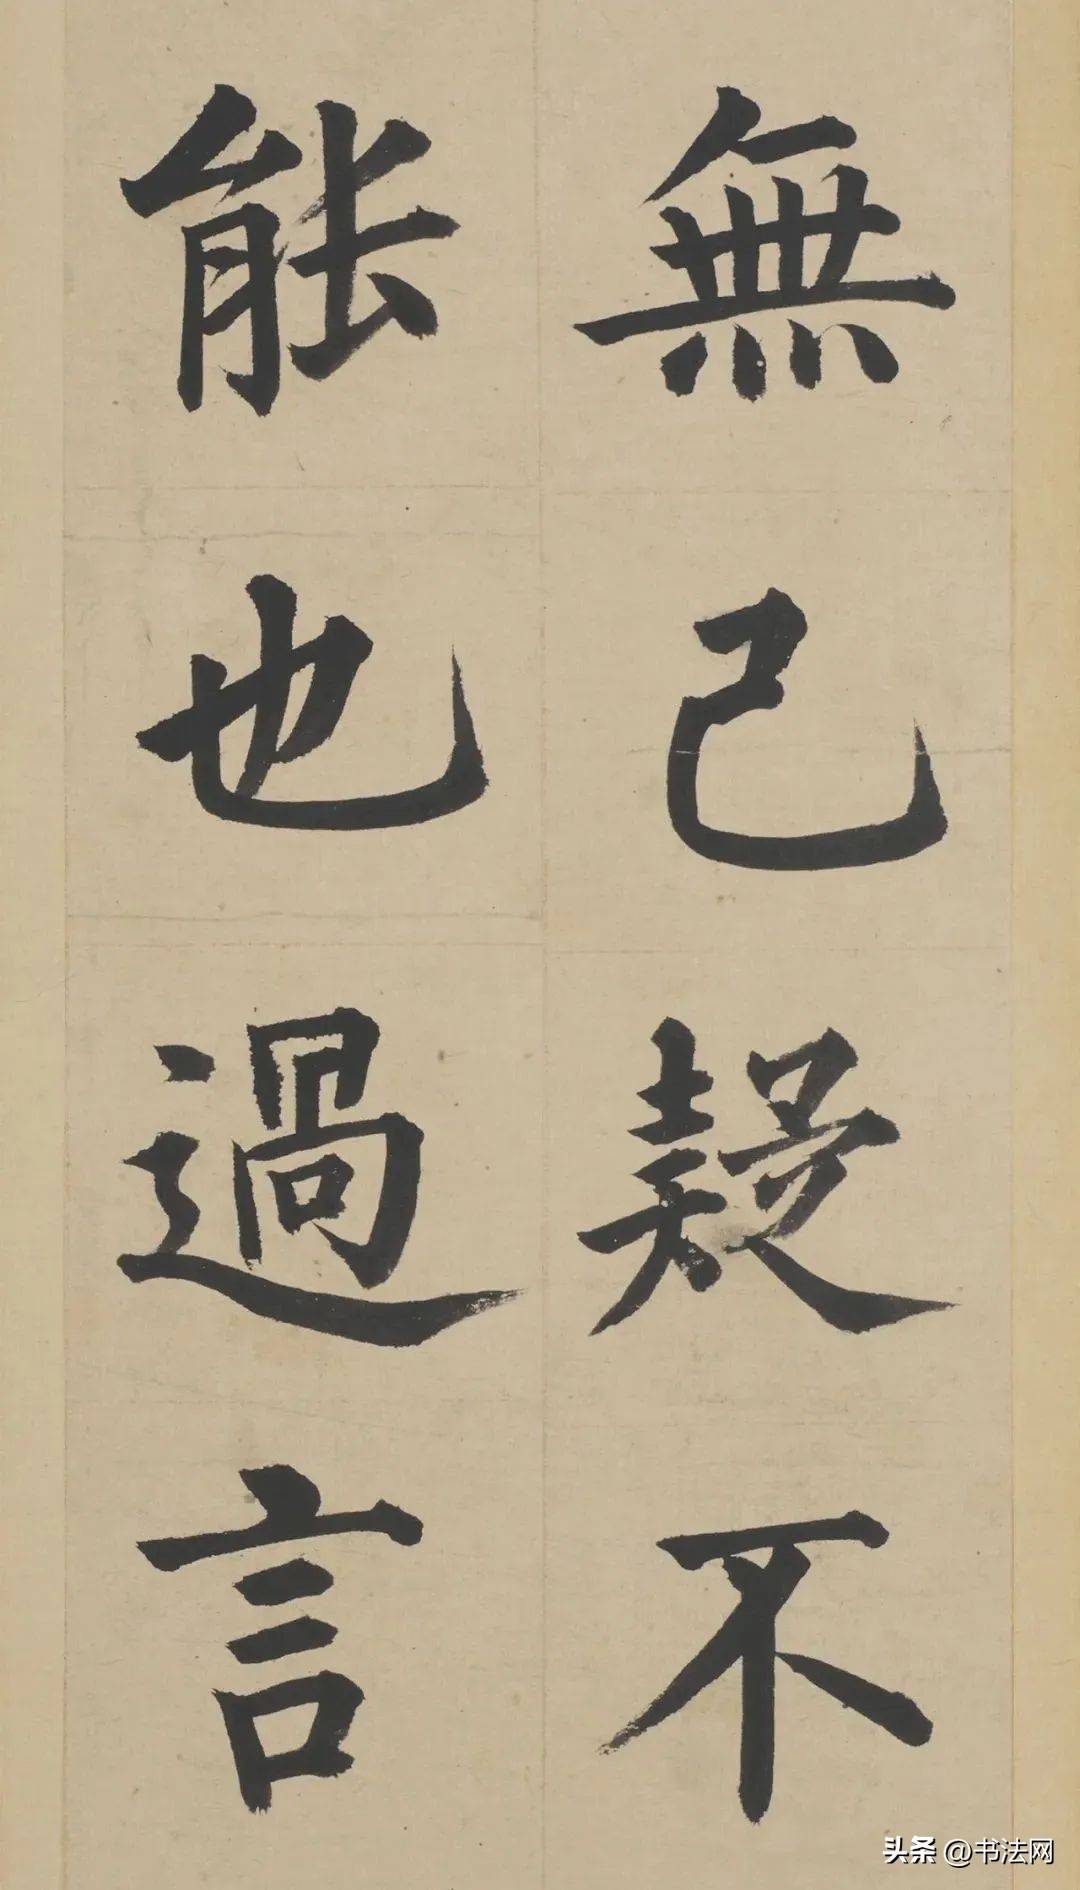 無己疑不
能也過言
头条 @书法网